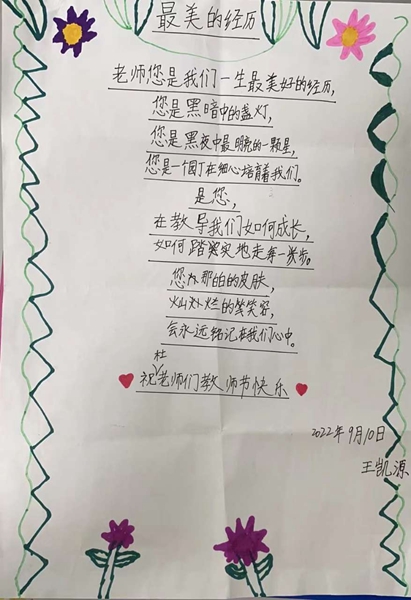 最美的经历
老师您是我们一生最美好的经历,
您是黑暗中的盏灯,
您是黑夜中最明亮的一颗星,
您是一个园丁在细心培育着我们。
是您,
在教导我们如何成长,
如何踏实地走每一步。
您那白白的皮肤,
灿烂的笑容,
会永远铭记在我们心中。
祝杜老师们教师节快乐
2022年9月10日
王凯源